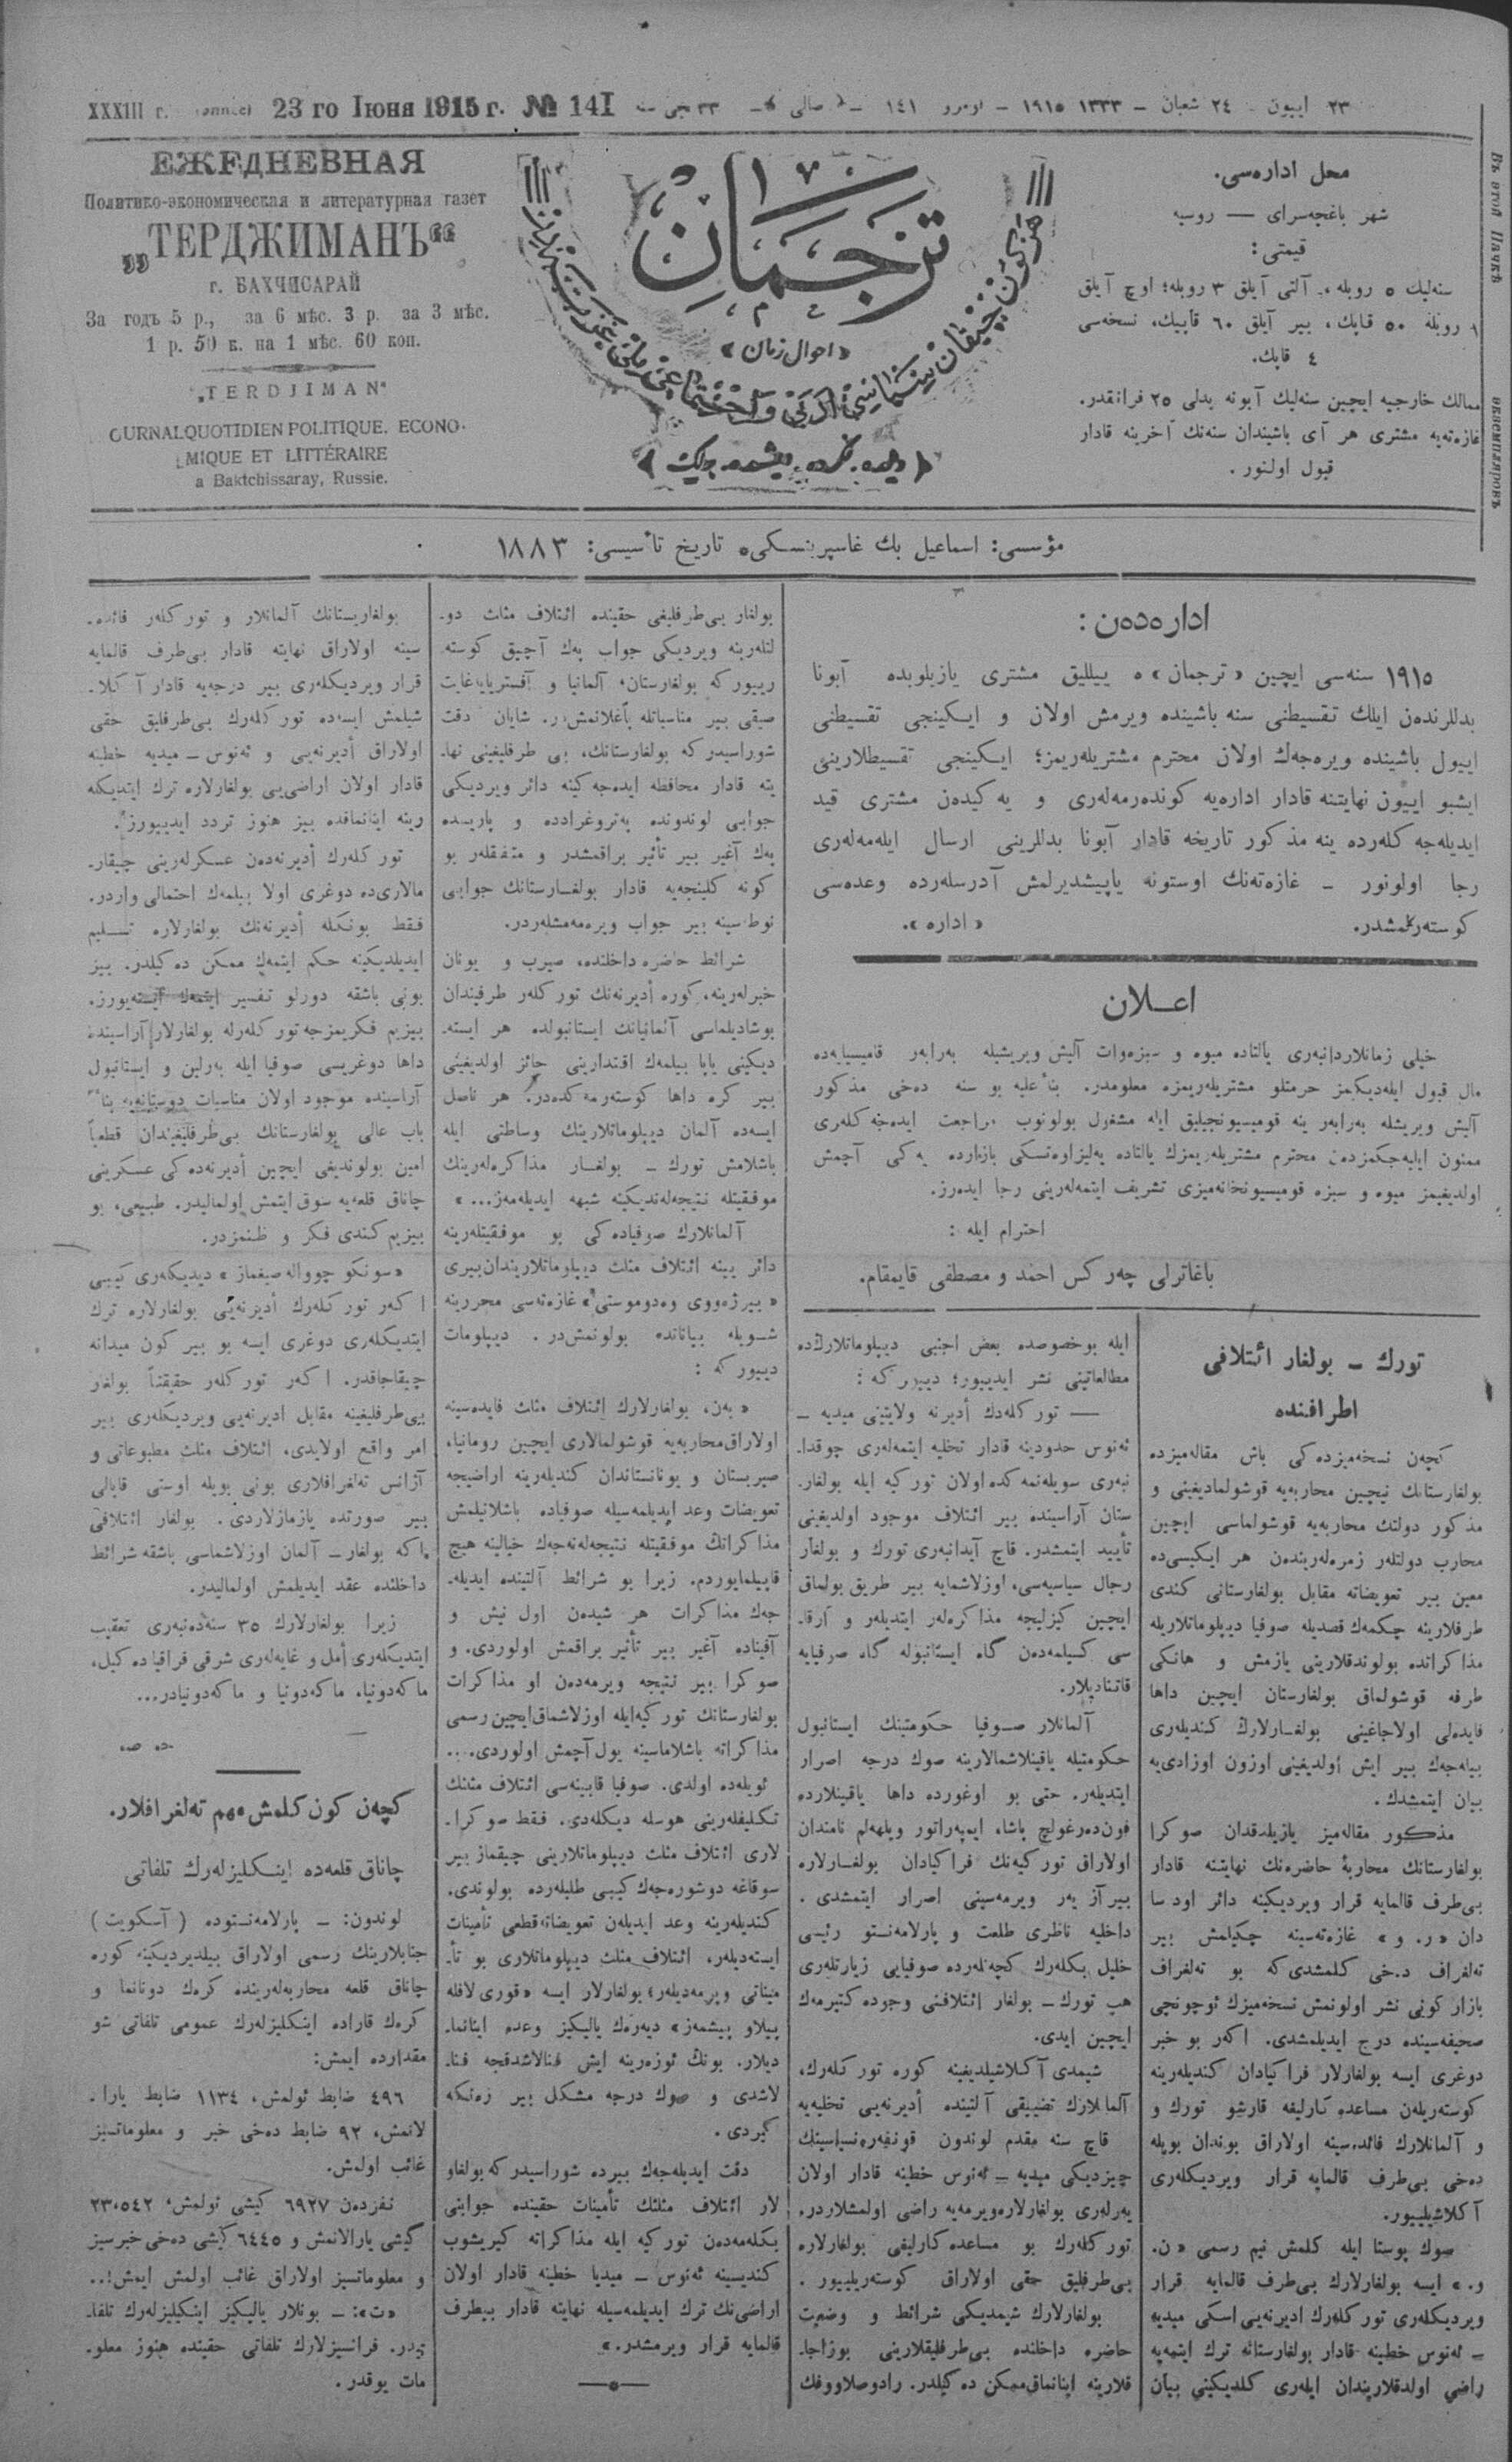 XXXIII г. 23 го Іюня 1915 г. № 141
٢٣ اییون ٢٤ شعبان – ١٣٣٣ ١٩١٥ – نومرو ١٤١
ЕЖЕДНЕВНАЯ
Политико-экономическая и литературная газет
„ТЕРДЖИМАНЪ“
г. БАХЧИСАРАЙ
За годъ 5 р., за 6 мѣс. 3 р. за 3 мѣс.
1 р. 50 к. на 1 мѣс. 60 коп.
„TERDJIMAN“
OURNAL QUOTIDIEN POLITIQUE, ECONO-
MIQUE ET LITTÉRAIRE
a Baktchissaray, Russie.
ترجمان
«احوال زمان»
محل اداره‌سی.
شهر باغچه‌سرای — روسیه
قیمتی:
سنه‌لیك ٥ روبله، آلتی آیلق ٣ روبله؛ اوچ آیلق
١ روبله ٥٠ قاپك، بیر آیلق ٦٠ قاپیك، نسخه‌سی
٤ قاپك.
ممالك خارجیه ایچین سنه‌لیك آبونه بدلی ٢٥ فرانقدر.
غازه‌ته‌یه مشتری هر آی باشیندان سنه‌نك آخرینه قادار
قبول اولنور.
Въ этой пачкѣ
экземпляровъ
مؤسسی: اسماعیل بك غاسپرینسكی، تاریخ تأسیسی: ١٨٨٣
اداره‌دن:
١٩١٥ سنه‌سی ایچین «ترجمان» ه ییللیق مشتری یازیلوبده آبونا
بدللرندن ایلك تقسیطنی سنه باشینده ویرمش اولان و ایكینجی تقسیطنی
اییول باشینده ویره‌جك اولان محترم مشتریله‌ریمز؛ ایكینجی تقسیطلارینی
ایشبو اییون نهایتنه قادار اداره‌یه كونده‌رمه‌له‌ری و یه‌كیدن مشتری قید
ایدیله‌جه‌كله‌رده ینه مذكور تاریخه قادار آبونا بدللرینی ارسال ایله‌مه‌له‌ری
رجا اولونور – غازه‌ته‌نك اوستونه یاپیشدیرلمش آدرسله‌رده وعده‌سی
كوسته‌رلمشدر. «اداره».
اعلان
خیلی زمانلاردانبه‌ری یالتاده میوه و سبزه‌وات آلیش ویریشیله به‌رابه‌ر قامیسیایه‌ده
مال قبول ایله‌دیكمز حرمتلو مشتریله‌ریمزه معلومدر. بنأ علیه بو سنه ده‌خی مذكور
آلیش ویریشله به‌رابه‌ر ینه قومیسیونجیلیق ایله مشغول بولونوب مراجعت ایده‌جه‌كله‌ری
ممنون ایلیه‌جكمزدن محترم مشتریله‌ریمزك یالتاده یه‌لیزاوه‌تسكی بازارده یه‌كی آچمش
اولدیغیمز میوه و سبزه قومیسیونخانه‌میزی تشریف ایتمه‌له‌رینی رجا ایده‌رز.
احترام ایله:
باغاترلی چه‌ركس احمد و مصطفی قایمقام.
تورك – بولغار ائتلافی
اطرافنده
كچه‌ن نسخه‌میزده‌كی باش مقاله‌میزده
بولغارستانك نیچین محاربه‌یه قوشولمادیغینی و
مذكور دولتك محاربه‌یه قوشولماسی ایچین
محارب دولتله‌ر زمره‌له‌ریندن هر ایكیسی‌ده
معین بیر تعویضاته مقابل بولغارستانی كندی
طرفلارینه چكمه‌ك قصدیله صوفیا دیپلوماتلاریله
مذاكراتده بولوندقلارینی یازمش و هانكی
طرفه قوشولماق بولغارستان ایچین داها
فایده‌لی اولاجاغینی بولغارلارك كندیله‌ری
بیله‌جه‌ك بیر ایش اولدیغینی اوزون اوزادی‌یه
بیان ایتمشدك.
مذكور مقاله‌میز یازیلدقدان صوكرا
بولغارستانك محاربهٔ حاضره‌نك نهایتنه قادار
بی‌طرف قالمایه قرار ویردیكینه دائر اودسا
دان «ر. و» غازه‌ته‌سینه چكیلمش بیر
ته‌لغراف دخی كلمشدی‌كه بو ته‌لغراف
بازار كونی نشر اولونمش نسخه‌میزك ئوچونچی
صحیفه‌سینده درج ایدیلمشدی. اكه‌ر بو خبر
دوغری ایسه بولغارلار فراكیادان كندیله‌رینه
كوسته‌ریله‌ن مساعده‌كارلیغه قارشو تورك و
و آلمانلارك فائده‌سینه اولاراق بوندان بویله
ده‌خی بی‌طرف قالمایه قرار ویردیكله‌ری
آكلاشیلییور.
صوك پوستا ایله كلمش نیم رسمی «ن.
و.» ایسه بولغارلارك بی‌طرف قالمایه قرار
ویردیكله‌ری توركله‌رك ادیرنه‌یی اسكی میدیه
– ئه‌نوس خطینه قادار بولغارستانه ترك ایتمه‌یه
راضی اولدقلاریندان ایله‌ری كلدیكینی بیان
ایله بوخصوصده بعض اجنبی دیپلوماتلارك‌ده
مطالعاتینی نشر ایدییور؛ دییوركه:
— توركله‌رك أدیرنه ولایتینی میدیه –
ئه‌نوس حدودینه قادار تخلیه ایتمه‌له‌ری چوقدا-
نبه‌ری سویله‌نمه‌كده اولان توركیه ایله بولغار-
ستان آراسینده بیر ائتلاف موجود اولدیغینی
تأیید ایتمشدر. قاچ آیدانبه‌ری تورك و بولغار
رجال سیاسیه‌سی، اوزلاشمایه بیر طریق بولماق
ایچین كیزلیجه مذاكره‌له‌ر ایتدیله‌ر و آرقا-
سی كسیلمه‌دن گاه ایستانبوله گاه صوفیایه
قاتنادیلار.
آلمانلار صوفیا حكومتینك ایستانبول
حكومتیله یاقینلاشمالارینه صوك درجه اصرار
ایتدیله‌ر. حتی بو اوغورده داها یاقینلارده
فون‌ده‌رغولچ پاشا، ایمپه‌راتور ویلهه‌لم نامندان
اولاراق توركیه‌نك فراكیادان بولغارلاره
بیر آز یه‌ر ویرمه‌سینی اصرار ایتمشدی.
داخلیه ناظری طلعت و پارلامه‌نتو رئیسی
خلیل بكله‌رك كچه‌نله‌رده صوفیایی زیارتله‌ری
هپ تورك – بولغار ائتلافنی وجوده كتیرمه‌ك
ایچین ایدی.
شیمدی آكلاشیلدیغینه كوره توركله‌رك،
آلمانلارك تضییقی آلتینده أدیرنه‌یی تخلیه‌یه
قاچ سنه مقدم لوندون قونفه‌ره‌نسیاسینك
چیزدیكی میدیه – ئه‌نوس خطینه قادار اولان
یه‌رله‌ری بولغارلاره‌ویرمه‌یه راضی اولمشلاردر.
توركله‌رك بو مساعده‌كارلیغی بولغارلاره
بی‌طرفلیق حقی اولاراق كوسته‌ریلییور.
بولغارلارك شیمدیكی شرائط و وضعیت
حاضره داخلنده بی‌طرفلیقلارینی بوزاجا-
قلارینه اینانماق‌ممكن ده‌كیلدر. رادوصلاووفك
بولغار بی‌طرفلیغی حقینده ائتلاف مثلث دو-
لتله‌رینه ویردیكی جواب په‌ك آچیق كوسته-
رییوركه بولغارستان، آلمانیا و آفستریایه‌غایت
صیقی بیر مناسباتله باغلانمش‌در. شایان دقت
شوراسیدركه بولغارستانك، بی طرفلیغینی نها-
یته قادار محافظه ایده‌جه‌كینه دائر ویردیكی
جوابی لوندونده په‌تروغرادده و پاریسده
په‌ك آغیر بیر تأثیر براقمشدر و متفقله‌ر بو
كونه كلینجه‌یه قادار بولغارستانك جوابی
نوطه‌سینه بیر جواب ویرمه‌مشله‌ردر.
شرائط حاضره داخلنده، صیرب و یونان
خبرله‌رینه، كوره أدیرنه‌نك توركله‌ر طرفیندان
بوشادیلماسی آلمانیانك ایستانبولده هر ایسته-
دیكینی یاپا بیلمه‌ك اقتدارینی حائز اولدیغینی
بیر كره داها كوسته‌رمه‌كده‌در. هر ناصل
ایسه‌ده آلمان دیپلوماتلارینك وساطتی ایله
باشلامش تورك – بولغار مذاكره‌له‌رینك
موفقیتله نتیجه‌له‌ندیكینه شبهه ایدیله‌مه‌ز...»
آلمانلارك صوفیاده‌كی بو موفقیتله‌رینه
دائر یینه ائتلاف مثلث دیپلوماتلاریندان‌بیری
«بیرژه‌ووی وه‌دوموستی» غازه‌ته‌سی محررینه
شویله بیاناتده بولونمش‌در. دیپلومات
دییوركه:
«به‌ن، بولغارلارك ائتلاف مثلث فایده‌سینه
اولاراق‌محاربه‌یه قوشولمالاری ایچین رومانیا،
صیربستان و یونانستاندان كندیله‌رینه اراضیجه
تعویضات وعد ایدیلمه‌سیله صوفیاده باشلانیلمش
مذاكراتك موفقیتله نتیجه‌له‌نه‌جه‌ك خیالینه هیچ
قاپیلمایوردم. زیرا بو شرائط آلتینده ایدیله-
جه‌ك مذاكرات هر شیدن اول نیش و
آفیناده آغیر بیر تأثیر براقمش اولوردی. و
صوكرا بیر نتیجه ویرمه‌دن او مذاكرات
بولغارستانك توركیه‌ایله اوزلاشماق‌ایچین رسمی
مذاكراته باشلاماسینه یول آچمش اولوردی...
ئویله‌ده اولدی. صوفیا قابینه‌سی ائتلاف مثلثك
تكلیفله‌رینی هوسله دیكله‌دی. فقط صوكرا-
لاری ائتلاف مثلث دیپلوماتلارینی چیقماز بیر
سوقاغه دوشوره‌جه‌ك كیبی طلبله‌رده بولوندی.
كندیله‌رینه وعد ایدیله‌ن تعویضاته‌قطعی تأمینات
ایسته‌دیله‌ر. ائتلاف مثلث دیپلوماتلاری بو تأ-
میناتی ویرمه‌دیله‌ر؛ بولغارلار ایسه «قوری لافله
پیلاو پیشمه‌ز» دیه‌رك یالیكیز وعده اینانما-
دیلار. بونك ئوزه‌رینه ایش فنالاشدقجه فنا-
لاشدی و صوك درجه مشكل بیر ره‌نكه
كیردی.
دقت ایدیله‌جه‌ك بیرده شوراسیدركه بولغا‌و
لار ائتلاف مثلثك تأمینات حقینده جوابنی
بكله‌مه‌دن توركیه ایله مذاكراته كیریشوب
كندیسینه ئه‌نوس – میدیا خطینه قادار اولان
اراضی‌نك ترك ایدیلمه‌سیله نهایته قادار بیطرف
قالمایه قرار ویرمشدر.»
بولغارستانك آلمانلار و توركله‌ر فائده-
سینه اولاراق نهایته قادار بی‌طرف قالمایه
قرار ویردیكله‌ری بیر درجه‌یه قادار آكلا-
شیلمش ایسه‌ده توركله‌رك بی‌طرفلیق حقی
اولاراق أدیرنه‌یی و ئه‌نوس – میدیه خطینه
قادار اولان اراضی‌یی بولغارلاره ترك ایتدیكله
رینه اینانماقده بیز هنوز تردد ایدییورز.
توركله‌رك أدیرنه‌دن عسكرله‌رینی چیقار-
مالاری‌ده دوغری اولا بیلمه‌ك احتمالی واردر.
فقط بونكله أدیرنه‌نك بولغارلاره تسلیم
ایدیلدیكینه حكم ایتمه‌ك ممكن ده‌كیلدر. بیز
بونی باشقه دورلو تفسیر ایتمه‌ك ایسته‌یورز.
بیزیم فكریمزجه توركله‌رله بولغارلار آراسینده
داها دوغریسی صوفیا ایله به‌رلین و ایستانبول
آراسینده موجود اولان مناسبات دوستانه‌یه بنأً
باب عالی بولغارستانك بی‌طرفلیغیندان قطعیاً
امین بولوندیغی ایچین أدیرنه‌ده‌كی عسكرینی
چاناق قلعه‌یه سوق ایتمش اولمالیدر. طبیعی، بو
بیزیم كندی فكر و ظنمزدر.
«سونكو چوواله صیغماز» دیدیكله‌ری كیبی
اكه‌ر توركله‌رك أدیرنه‌یی بولغارلاره ترك
ایتدیكله‌ری دوغری ایسه بو بیر كون میدانه
چیقاجاقدر. اكه‌ر توركله‌ر حقیقتاً بولغار
بی‌طرفلیغینه مقابل ادیرنه‌یی ویردیكله‌ری بیر
امر واقع اولایدی، ائتلاف مثلث مطبوعاتی و
آژانس ته‌لغرافلاری بونی بویله اوستی قاپالی
بیر صورتده یازمازلاردی. بولغار ائتلافی
یاكه بولغار – آلمان اوزلاشماسی باشقه شرائط
داخلنده عقد ایدیلمش اولمالیدر.
زیرا بولغارلارك ٣٥ سنه‌دنبه‌ری تعقیب
ایتدیكله‌ری أمل و غایه‌له‌ری شرقی فراقیا ده‌كیل،
ماكه‌دونیا، ماكه‌دونیا و ماكه‌دونیادر...
كچه‌ن كون كلمش مهم ته‌لغرافلار.
چاناق قلعه‌ده اینكلیزله‌رك تلفاتی
لوندون: – پارلامه‌نتوده (آسكویت)
جنابلارینك رسمی اولاراق بیلدیردیكینه كوره
چاناق قلعه محاربه‌له‌رینده كره‌ك دونانما و
كره‌ك قاراده اینكلیزله‌رك عمومی تلفاتی شو
مقدارده ایمش:
٤٩٦ ضابط ئولمش، ١١٣٤ ضابط یارا-
لانمش، ٩٢ ضابط ده‌خی خبر و معلوماتسیز
غائب اولمش.
نفردن ٦٩٢٧ كیشی ئولمش، ٢٣،٥٤٢
كیشی یارالانمش و ٦٤٤٥ كیشی ده‌خی خبرسیز
و معلوماتسیز اولاراق غائب اولمش ایمش!..
«ت»: – بونلار یالیكیز اینكیلیزله‌رك تلفا-
تیدر. فرانسیزلارك تلفاتی حقینده هنوز معلو-
مات یوقدر.